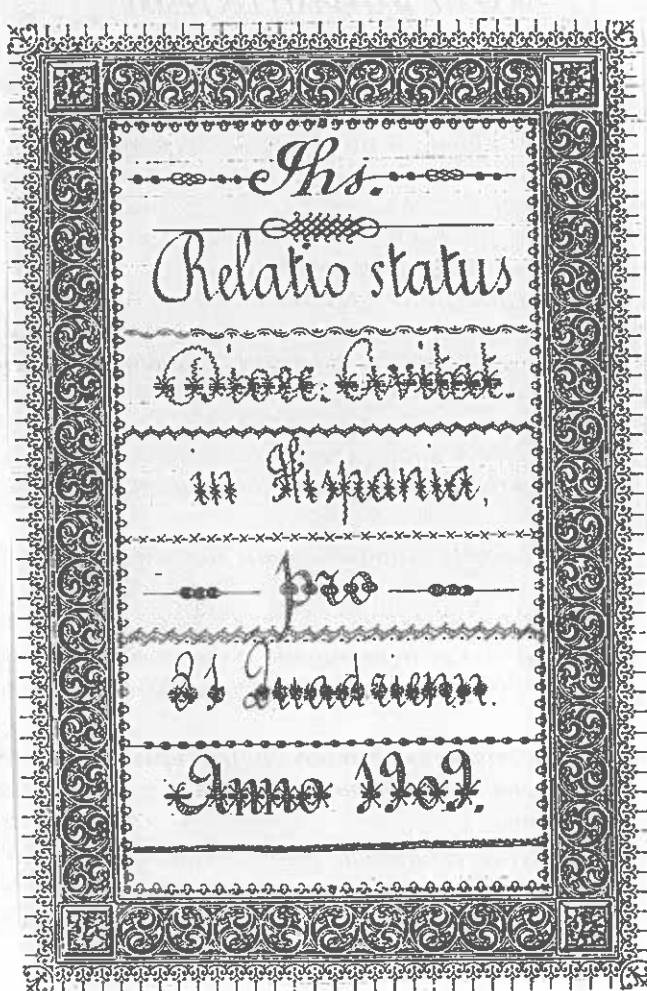 Ihs.
Relatio status
Diœc. Civitat.
in Hispania,
pro
81 Quadrienn.
Anno 1909.